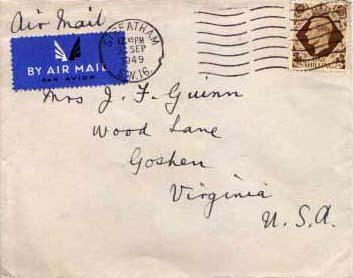 Air Mail
STREATHAM
12 15 PM
SEP
1949
S.W.16.
BY AIR MAIL
PAR AVION
SHILLING
Mrs J. F. Guinn
Wood Lane
Goshen
Virginia
U.S.A.